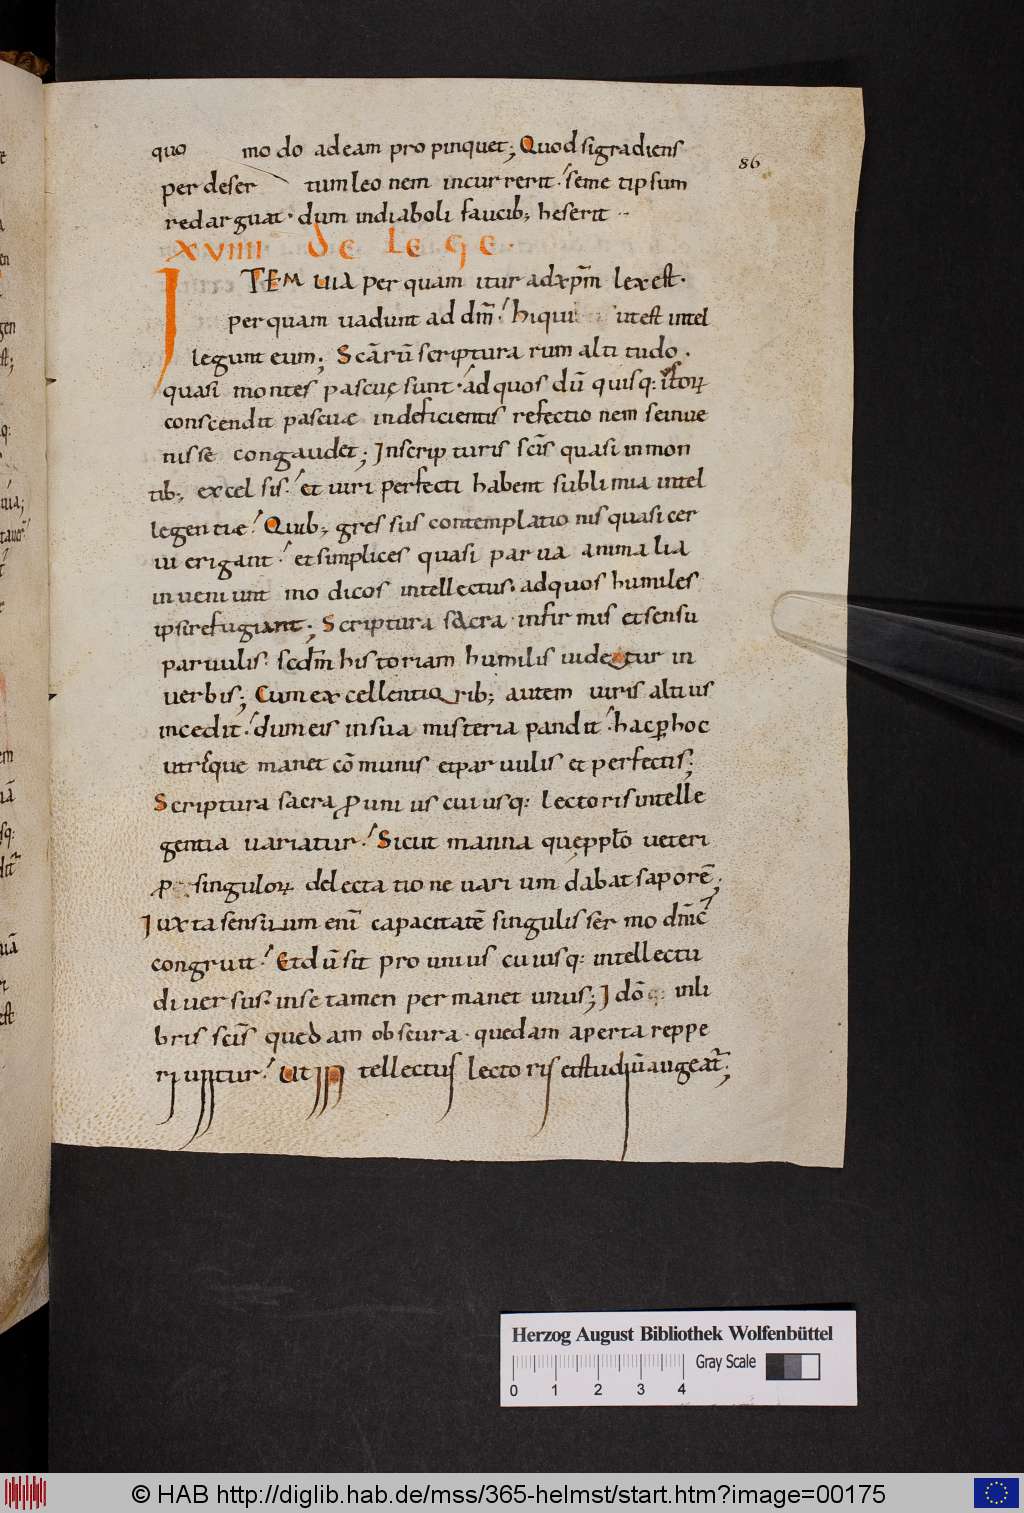 quo modo ad eam propinquet; Quod si gradiens
86
per desertum leonem incurrerit. semetipsum
redarguat. dum in diaboli faucib; heserit
XVIIII DE LEGE.
ITEM uia per quam itur ad xp̄m lex est.
per quam uadunt ad dm̄. hi qui ut est intel
legunt eum; Scārū scripturarum altitudo.
quasi montes pascuę sunt. ad quos dū quisq: 
conscendit pascuae indeficientis refectionem se inue
nisse congaudet; In scripturis scīs quasi in mon
tib; excelsis. et uiri perfecti habent sublimia intel
legentiae. Quib; gressus contemplationis quasi cer
ui erigant. et simplices quasi parua animalia
inueniunt modicos intellectus. ad quos humiles
ipsi refugiant; Scriptura sacra. infirmis et sensu
paruulis. scdm̄ historiam humilis uidetur in
uerbis; Cum excellentiorib; autem uiris altius
incedit. dum eis in sua misteria pandit. hac ꝑ hoc
utrisque manet cōmunis et paruulis et perfectis;
Scriptura sacra ꝓ uniuscuiusq: lectoris intelle
gentia uariatur. Sicut manna quę ppl̄o ueteri
ꝓ singuloꝝ delectatione uarium dabat saporē;
Iuxta sensuum enī capacitatē singulis sermo dnīc
congruit. Et dū sit pro uniuscuiusq: intellectu
diuersus. in se tamen permanet unus; Idōq: in li
bris scīs quedam obscura. quedam aperta reppe
riuntur. ut intellectus lectoris et studiū augeat;
Herzog August Bibliothek Wolfenbüttel
Gray Scale
0 1 2 3 4
© HAB http://diglib.hab.de/mss/365-helmst/start.htm?image=00175